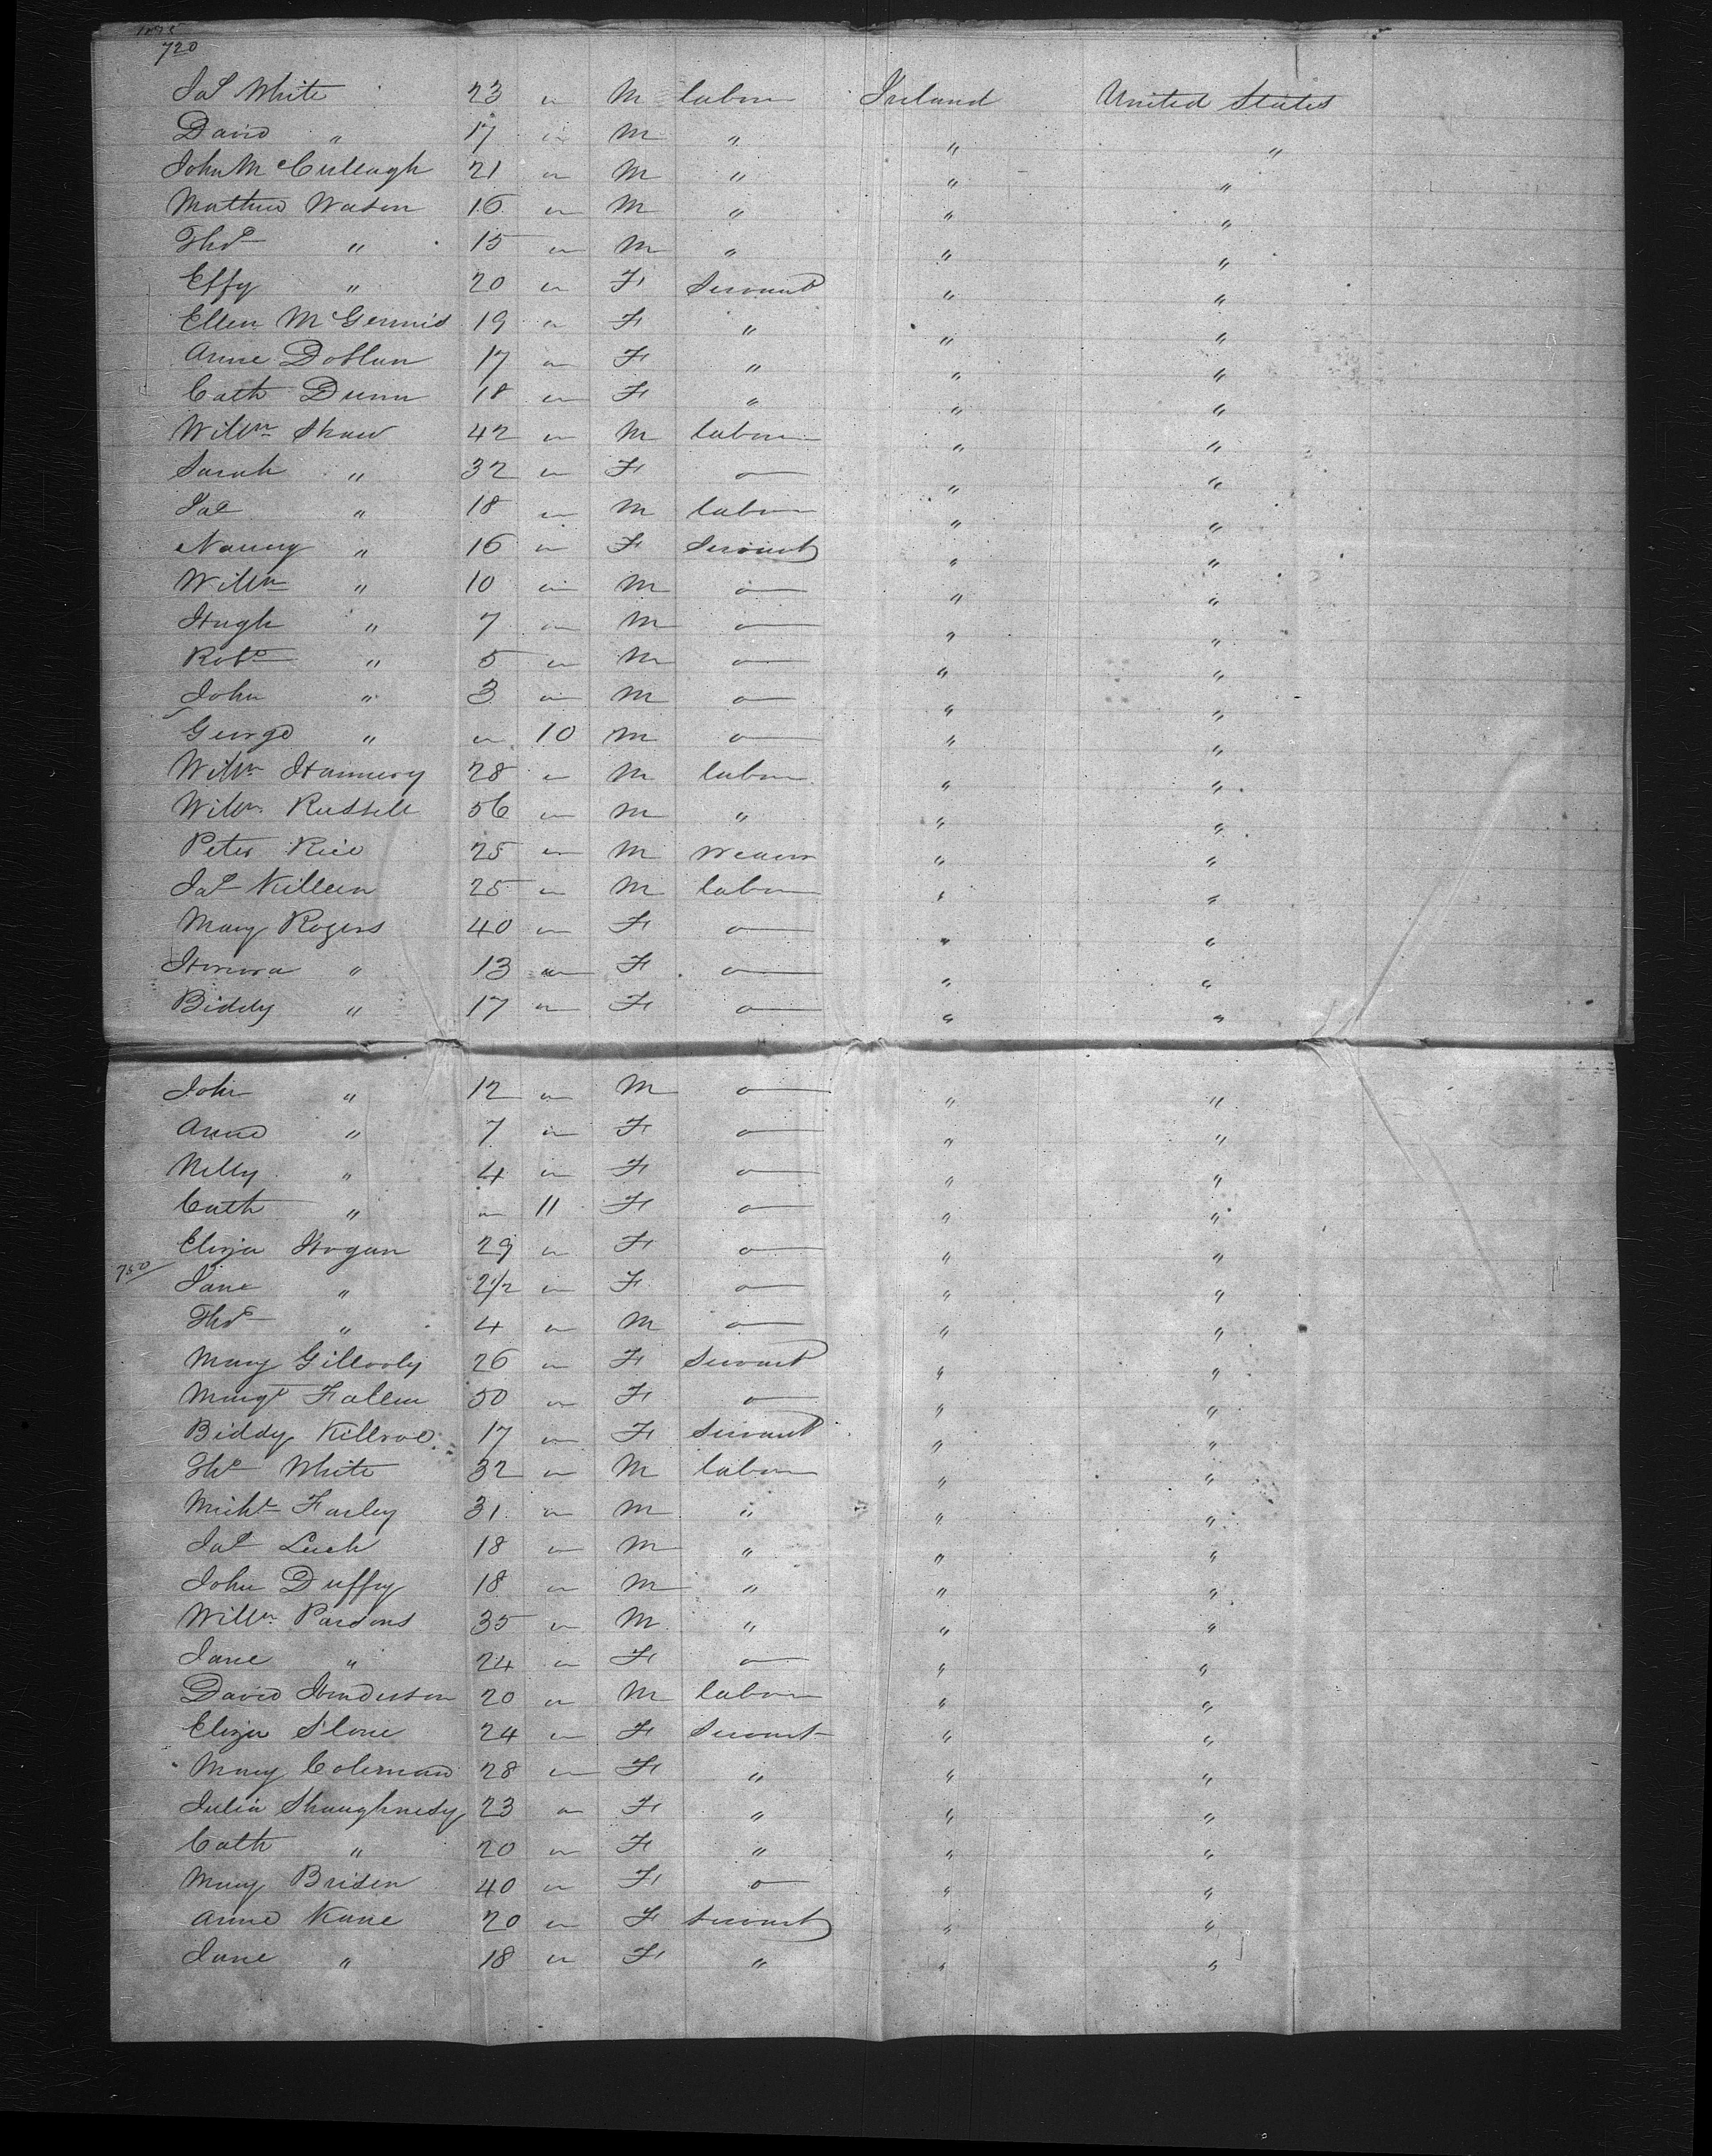 720
Jas White 23 " M labor Ireland United States
David " 17 " M " " "
John McCullagh 21 " M " " "
Mathew Watson 16 " M " " "
Thos " 15 " M " " "
Effy " 20 " F Servant " "
Ellen McGennis 19 " F " " "
Anne Doblan 17 " F " " "
Cath Dunn 18 " F " " "
Willm Shaw 42 " M labor " "
Sarah " 32 " F " " "
Jas " 18 " M labor " "
Nancy " 16 " F Servant " "
Willm " 10 " M " " "
Hugh " 7 " M " " "
Robt " 5 " M " " "
John " 3 " M " " "
George " " 10 M " " "
Willm 28 " M labor " "
Willm Russell 56 " M " " "
Peter Rice 25 " M weaver " "
Jas Killeen 25 " M labor " "
Mary Rogers 40 " F " " "
Honora " 13 " F " " "
Biddy " 17 " F " " "
John " 12 " M " " "
Anne " 7 " F " " "
Nelly " 4 " F " " "
Cath " " 11 F " " "
Eliza Hogan 29 " F " " "
750 Jane " 2 1/2 " F " " "
Thos " 4 " M " " "
Mary Gillooly 26 " F Servant " "
Margt Fallen 50 " F " " "
Biddy Killroe 17 " F Servant " "
Thos White 32 " M labor " "
Michl Farley 31 " M " " "
Jas 18 " M " " "
John Duffy 18 " M " " "
Willm Parsons 35 " M " " "
Jane " 24 " F " " "
David Henderson 20 " M labor " "
Eliza Slone 24 " F Servant " "
Mary Coleman 28 " F " " "
Julia Shaughnesy 23 " F " " "
Cath " 20 " F " " "
Mary Brisen 40 " F " " "
Anne Kane 20 " F Servant " "
Jane " 18 " F " " "